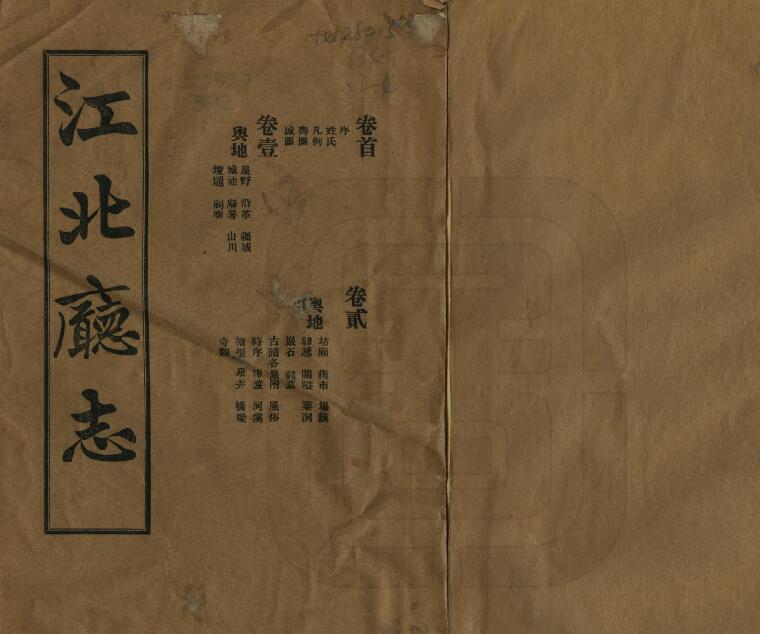 江北廳志
卷首
序
姓氏
凡例
輿圖
城圖
卷壹
輿地
星野 沿革 疆域
城池 廨署 山川
壇壝 祠廟
卷貳
輿地
坊廂 街市 場鎮
關隘 寨洞
巖石 祠墓
古蹟各景附 風俗
時序 津渡 河溪
塘堰 泉井 橋梁
寺觀